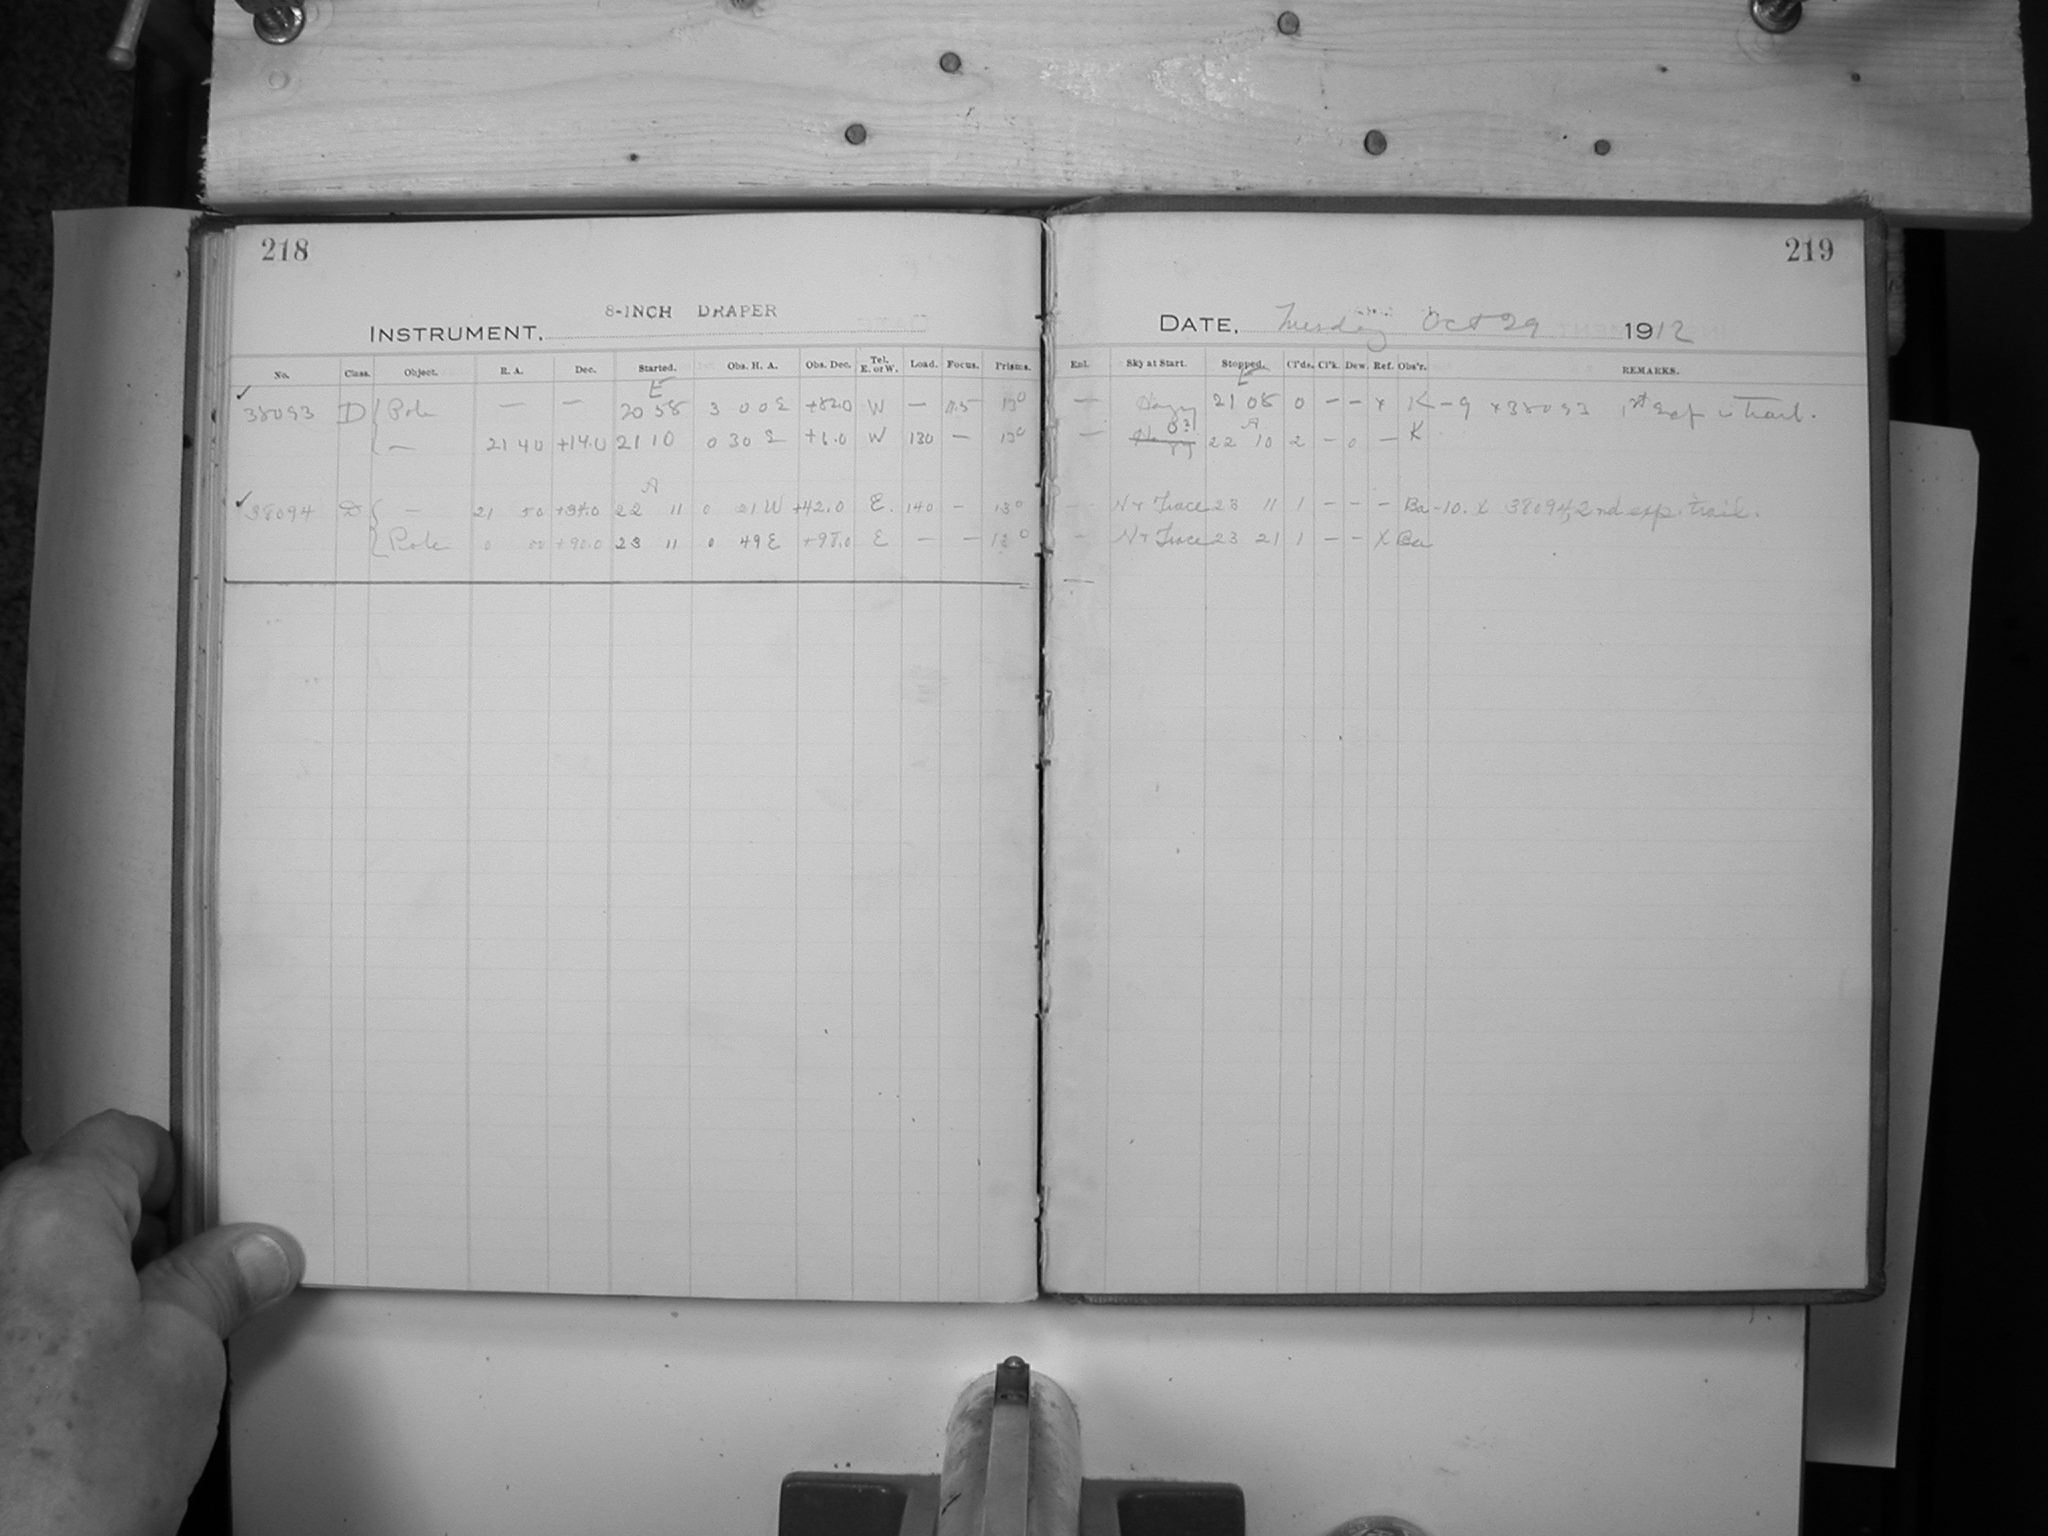 218
8-INCH DRAPER
INSTRUMENT.
No. Class. Object. R. A. Dec. Started. Obs. H. A. Obs. Dec. Tel. E. or W. Load. Focus. Prisms.
E
38093 D Pole — — 20 58 3 00 E +82.0 W — 11.5 13°
— 21 40 +14.0 21 10 0 30 E W 130 — 13°
A
38094 D — 21 50 +34.0 22 11 0 21 W +42.0 E. 140 - 13°
Pole 0 00 +90.0 23 11 0 49 E E — — 13°
219
DATE. Tuesday Oct 29 1912
Enl. Sky at Start. Stopped. Cl'ds. Cl'k. Dew. Ref. Obs'r. REMARKS.
E
— Hazy 21 08 0 — — x K - 9 x 38093 1st Exp is Trail.
A
— Hazy 22 10 2 - 0 — K
- N + Trace 23 11 1 - - - Ba - 10. x 38094, 2nd exp. trail.
- N + Trace 23 21 1 - - X Ba